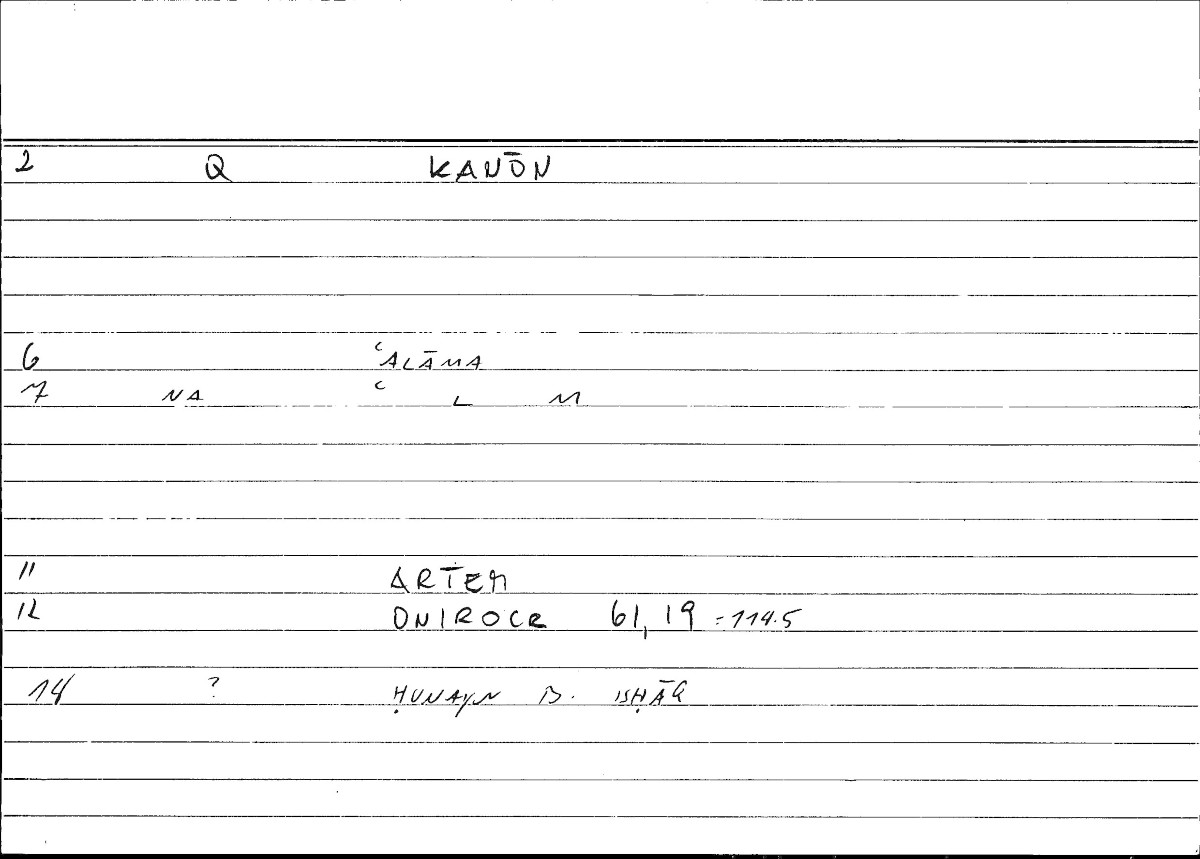 2 Q KANŌN
6 ʿALĀMA
7 NA ʿ L M
11 ARTEM
12 ONIROCR 61,19 = 114.5
14 ? ḤUNAYN B. ISḤĀQ